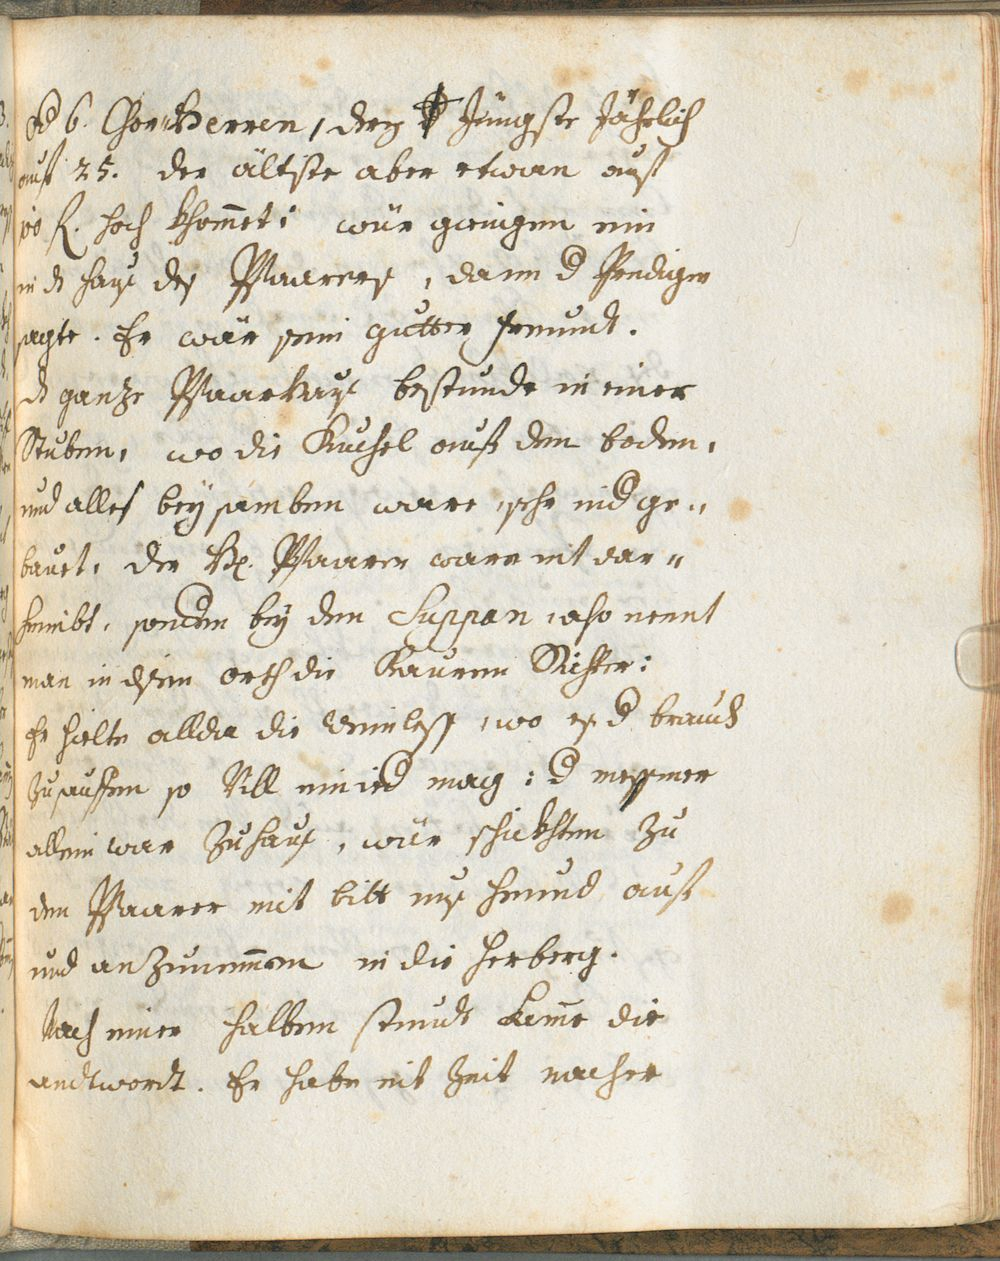 6. Chor Herren, derz Jüngste Jährlich
auf 25. der ältiste aber etwan auf
f. hoch khommet: wür giengen ein
in ds hauß des Pfaarers, dann d Prediger
sagte. Er wär sein gutter freundt.
ds ganze Pfaarhauß bestunde in einer
Stuben, wo die Kuchel auf dem boden,
und alles beysamben ware, sehr nider ge„
bauet, der H. Pfaarer ware nit dar„
heimbt, sondern bey dem Suppan, also nennt
man in disem orth die Bauren Richter:
Er hielte allda die weinleß, wo es d brauch
zusauffen so Vill ein ied mag: d messner
allein war zu hauß, wür schickhten zu
dem Pfaarer mit bitt unß heund auf
und anzunemmen in die Herberg.
Nach einer halben stundt kamme die
andtwordt. Er habe nit Zeit nacher